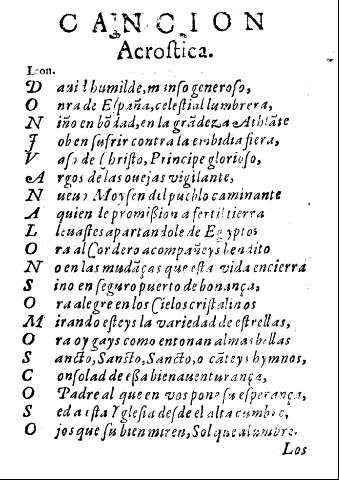 CANCION
Acrostica.
Leon.
D auid humilde, manso generoso,
O nra de España, celestial lumbrera,
N iño en bõdad, en la grãdeza Athlãte
J ob en sufrir contra la embidia fiera,
V aso de Christo, Principe glorioso,
A rgos de las ouejas vigilante,
N ueuo Moysen del pueblo caminante
A quien de promißion a fertil tierra
L leuastes apartandole de Egypto
O ra al Cordero acompañeys bendito
N o en las mudãças que esta vida encierra
S ino en seguro puerto de bonança,
O ra alegre en los Cielos cristalinos
M irando esteys la variedad de estrellas,
O ra oygays como entonan almas bellas
S ancto, Sancto, Sancto, o cãteys hymnos,
C onsolad de eßa bienauenturança,
O Padre al que en vos pone su esperança,
S ed a esta Yglesia desde el alta cumbre,
O jos que su bien miren, Sol que alumbre.
Los